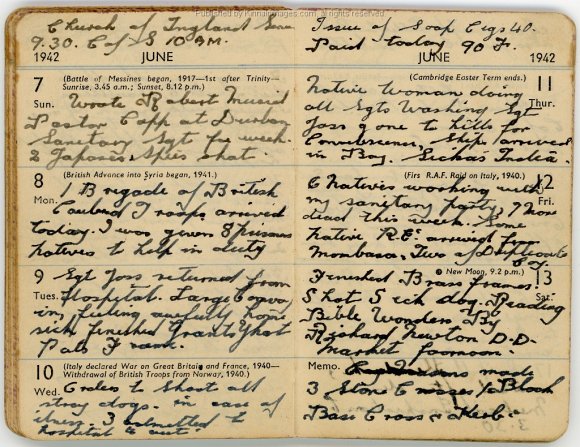 Published by Kinnaimages.com. All rights reserved
Church of England
9.30. C of S 10 AM.
1942 JUNE
7 (Battle of Messines began, 1917—1st after Trinity—
Sunrise, 3.45 a.m.; Sunset, 8.12 p.m.)
Sun. Wrote Robert
Pastor Capp at Durban
Sanitary Sgt for week.
2 Japanese Spies shot.
8 (British Advance into Syria began, 1941.)
Mon. 1 Brigade of British
Troops arrived
today. I was given 8 prisoners
natives to help in duty
9 Sgt Joss returned from
Tues. Hospital. Large Convoy
in, feeling awfully home
sick finished Grants Ghost
Pale Frame.
10 (Italy declared War on Great Britain and France, 1940—
Withdrawal of British Troops from Norway, 1940.)
Wed. Orders to shoot all
stray dogs. in case of
illness. 3 admitted to
hospital &
Issue of Soap Cigs 40.
Paid today 90 F.
JUNE 1942
(Cambridge Easter Term ends.) 11
Native Woman doing Thur.
all Sgts Washing Sgt
Joss gone to hills for
Ship arrived
in Bay. India.
(First R.A.F. Raid on Italy, 1940.) 12
6 natives working with Fri.
my sanitary party, 7 more
dead this week. Some
native R.E. arrived from
Mombasa. Two of
● New Moon, 9.2 p.m.) 13
Finished Brass frames.
Shot 5 sick dog. Reading Sat.
Bible Wonders By
Richard Newton D.D.
Market forenoon.
Memo. made
3 Stone Crosses
Base Cross &